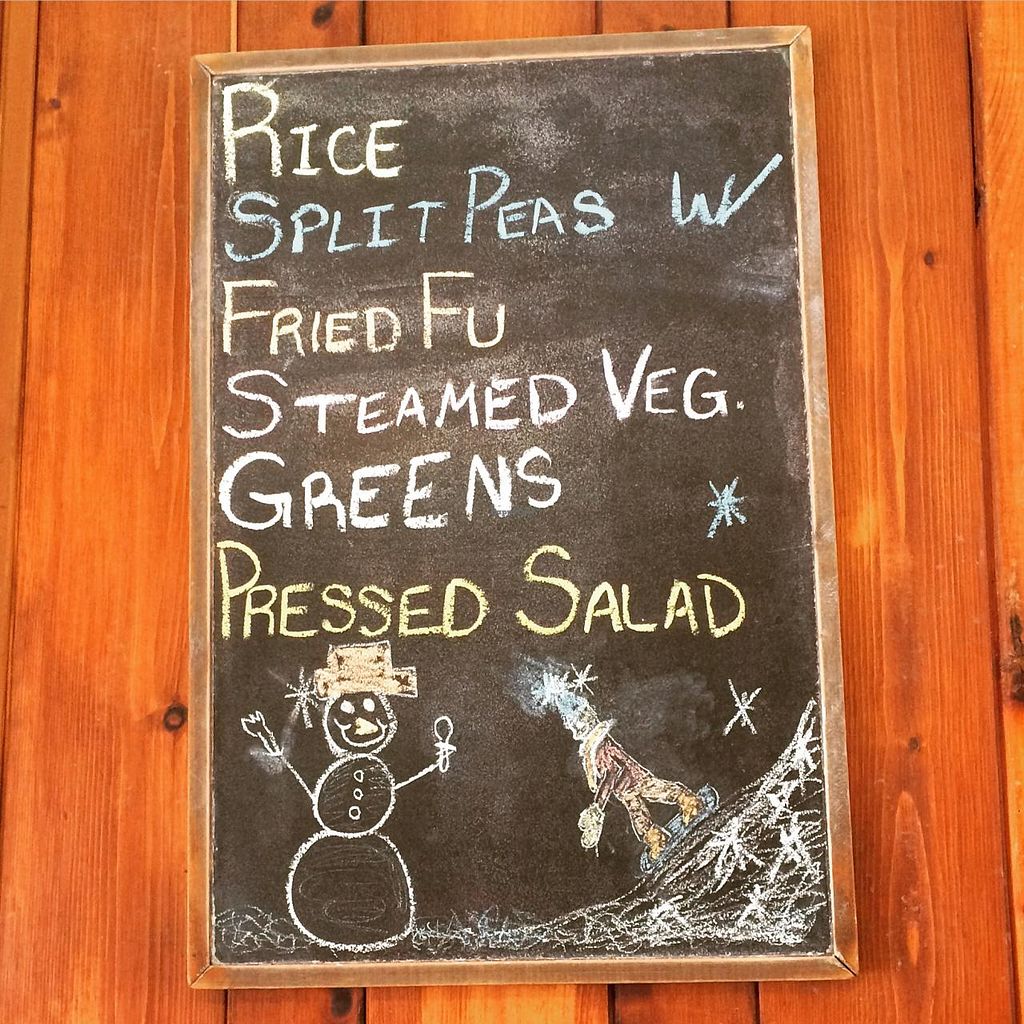 RICE
SPLIT PEAS W/
FRIED FU
STEAMED VEG.
GREENS
PRESSED SALAD